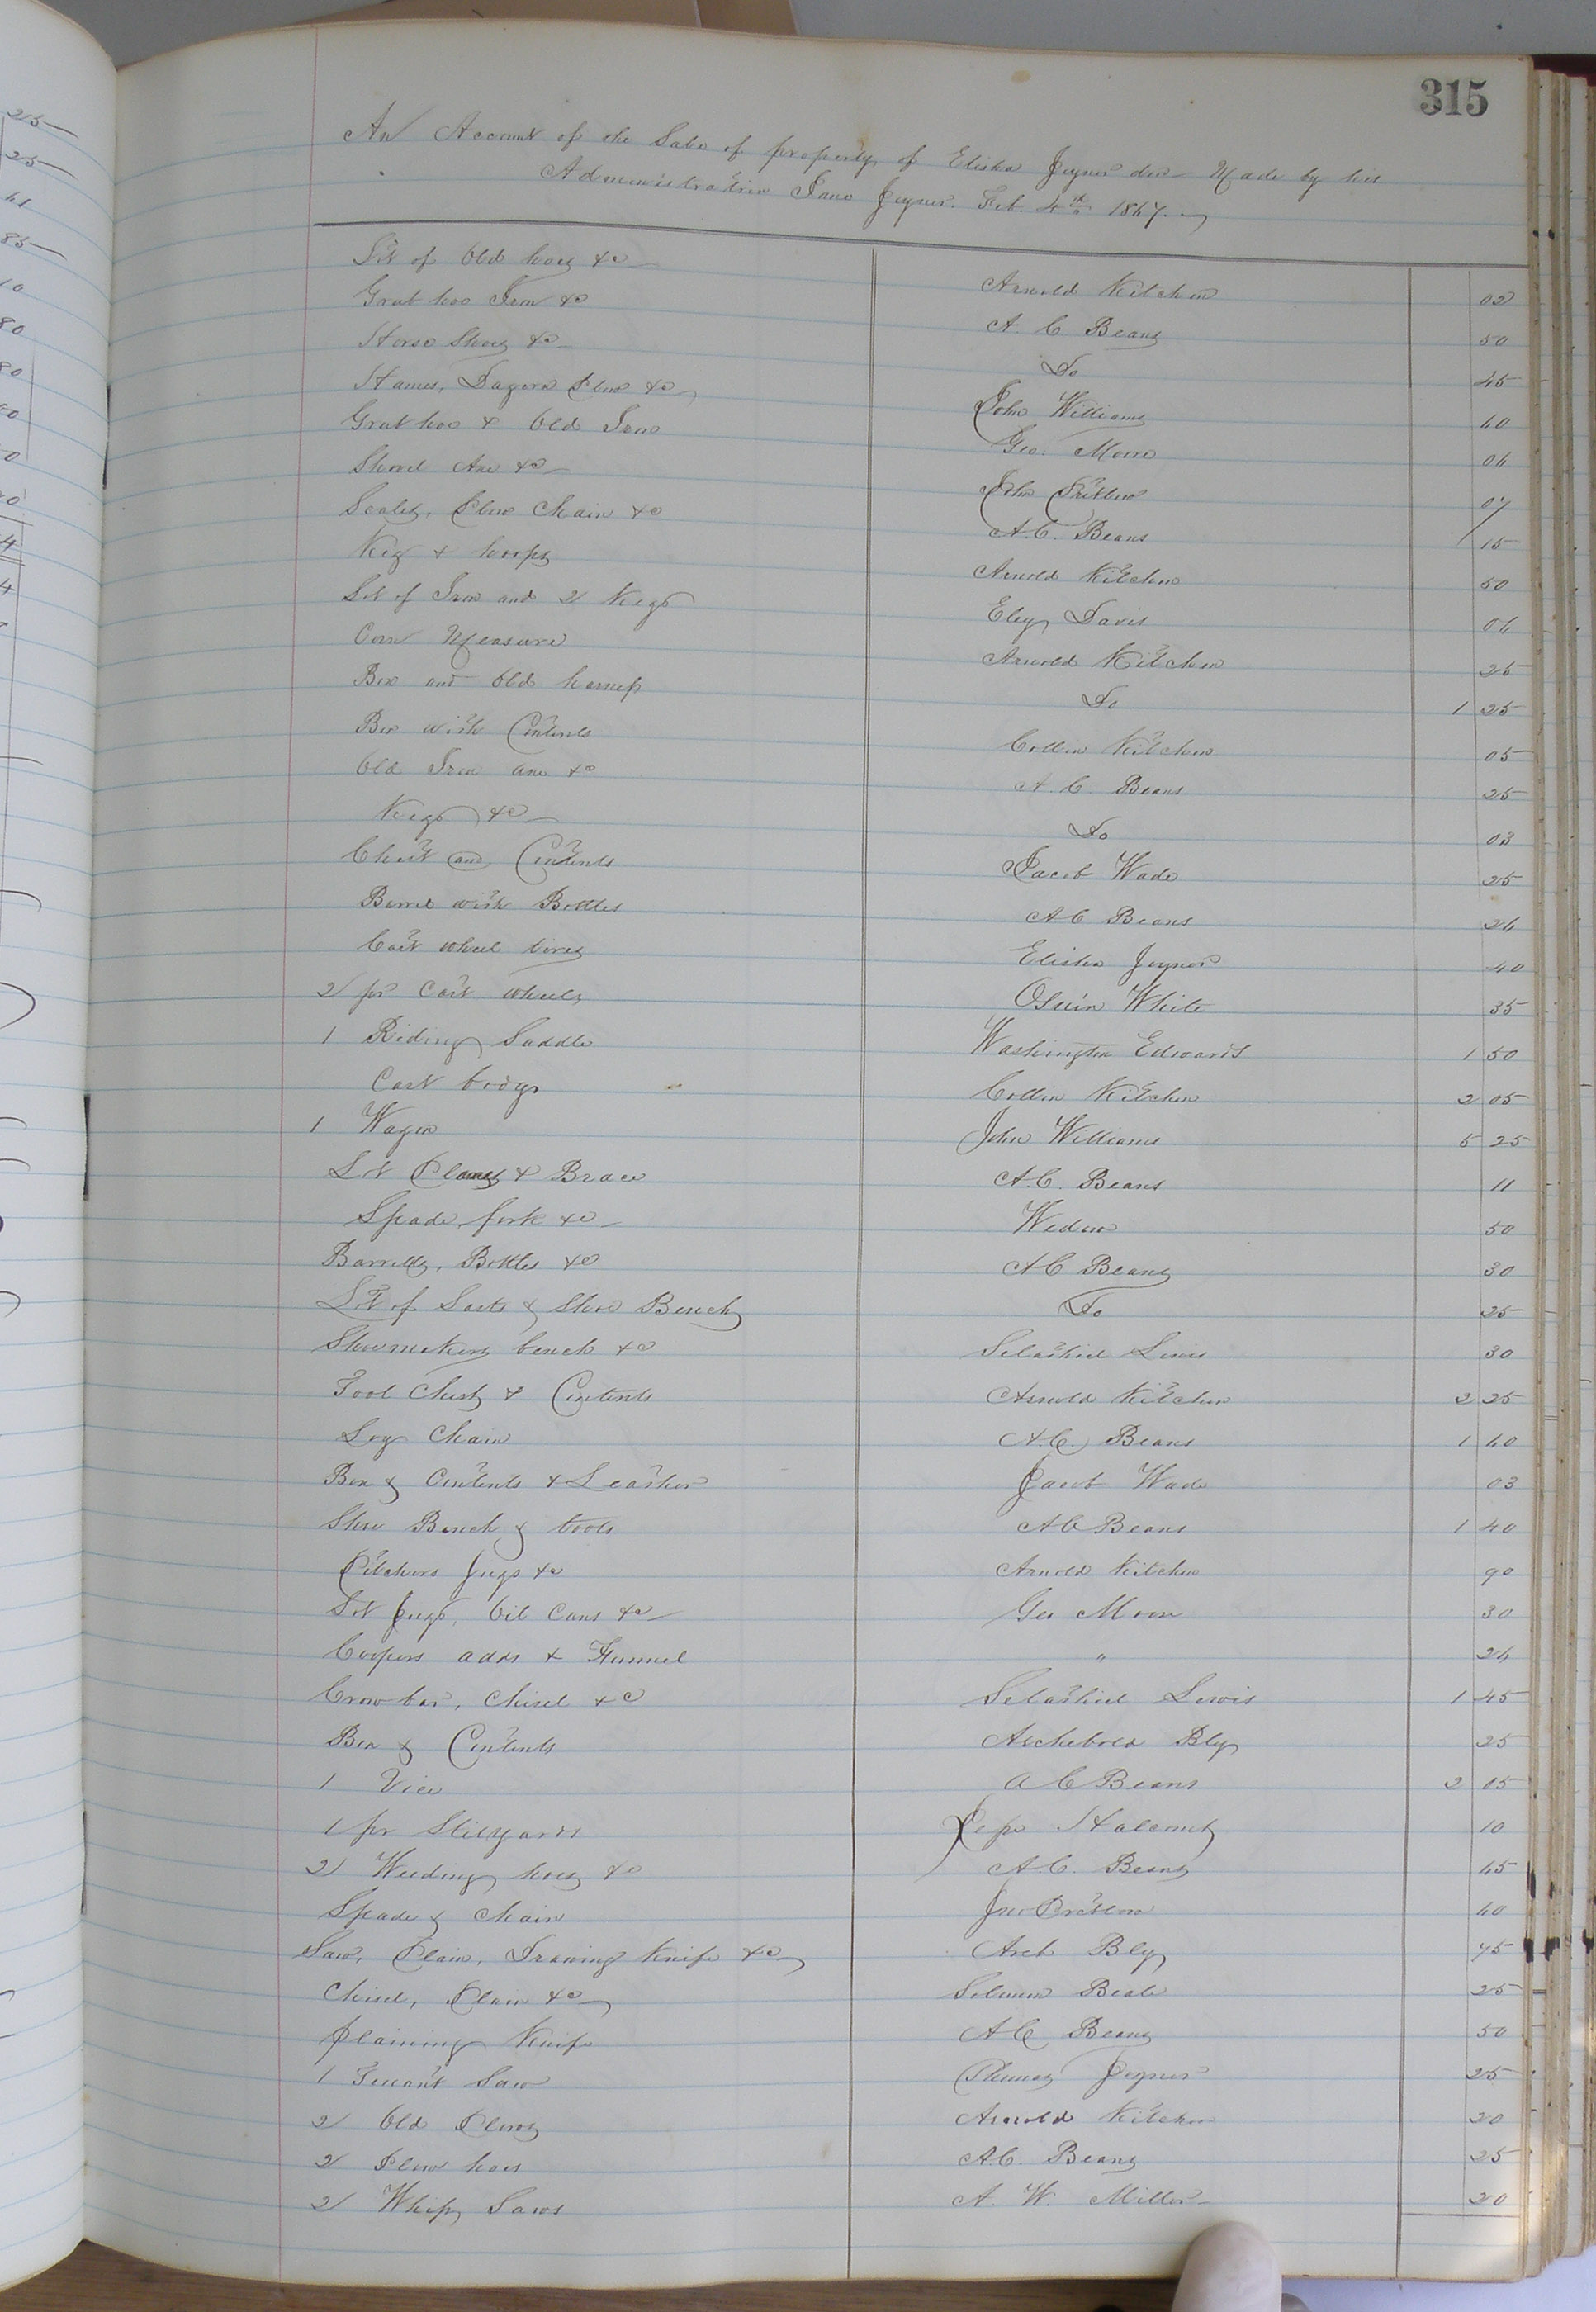 315
An Account of the Sale of property of Elisha Joyner dec Made by his
Administratrix Jane Joyner. Feb. 4th 1867.
Lot of Old hoes &c Arnold Kitchen 02
Grub hoe Iron &c A. C Beans 50
Horse Shoes &c Do 45
Hames, Dagon Plow &c John Williams 40
Grub hoe & Old Iron Geo. Moore 04
Shovel Axe &c John Pretlow 07
Scales, Plow Chain &c A. C. Beans 15
Keg & hoops Arnold Kitchen 50
Lot of Iron and 2 Kegs Eley Davis 04
Corn Measure Arnold Kitchen 25
Box and Old harness Do 1 25
Box with Contents Collin Kitchen 05
Old Iron axe &c A. C Beans 25
Kegs &c Do 03
Chest and Contents Jacob Wade 25
Barrel with Bottles A C Beans 24
Cart wheel tires Elisha Joyner 40
2 pr Cart wheels White 35
1 Riding Saddle Washington Edwards 1 50
Cart Collin Kitchen 2 05
1 Wagon John Williams 5 25
Lot Planes & Brace A. C. Beans 11
Spade, fork &c Widow 50
Barrells, Bottles &c A C Beans 30
Lot of Lasts & Shoe Bench Do 25
Shoemakers bench &c Salathiel Lewis 30
Tool Chest & Contents Arnold Kitchen 2 25
Log Chain A. C. Beans 1 40
Box & Contents & Leather Jacob Wade 03
Shoe Bench & tools A C Beans 1 40
Pitchers Jugs &c Arnold Kitchen 90
Lot Jugs, Oil Cans &c Geo Moore 30
Coopers adds & Funnel " 24
Crow bar, Chisel &c Selathiel Lewis 1 45
Box & Contents Archebold Bly 25
1 Vice A C Beans 2 05
1 pr Stilyards Halcomb 10
2 Weeding hoes &c A. C. Beans 45
Spade & Chain Jno Pretlow 40
Saw, Plain, Drawing Knife &c Arch Bly 75
Chisel, Plain &c Solomon Beale 25
Plaining Knife A C Beans 50
1 Tenant Saw Thomas Joyner 25
2 Old Plows Arnold Kitchen 20
2 Plow hoes A. C. Beans 25
2 Whip Saws A. W. Miller 20